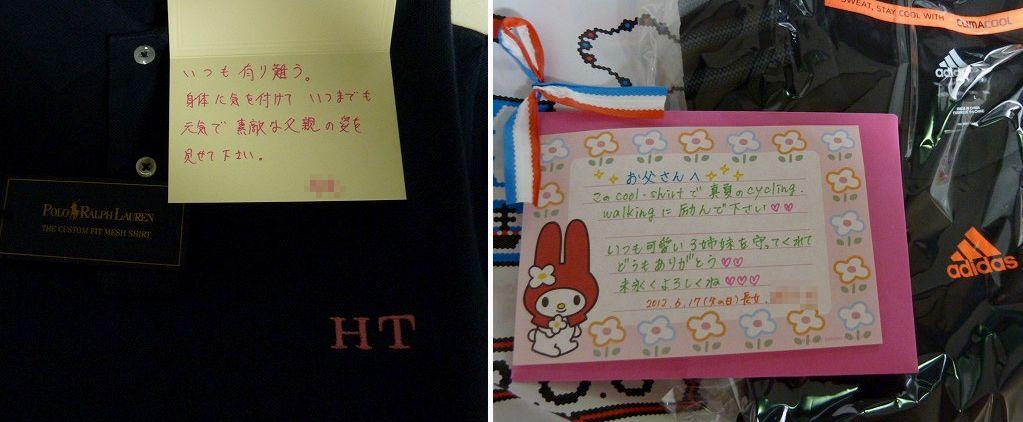 いつも有り難う。
身体に気を付けて いつまでも
元気で素敵な父親の姿を
見せて下さい。
POLO RALPH LAUREN
THE CUSTOM FIT MESH SHIRT
HT
SWEAT, STAY COOL WITH CLIMACOOL
adidas
お父さんへ
このcool-shirtで真夏のcycling.
walkingに励んで下さい♡♡
いつも可愛い3姉妹を守ってくれて
どうもありがとう♡♡
末永くよろしくね♡♡♡
2012.6.17(父の日)長女.
adidas